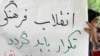 انقلاب فرهنگی
تکرار باید گردد